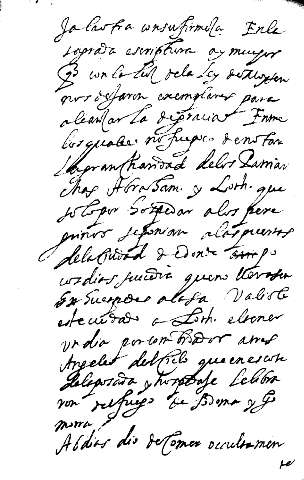 la chusfra consufirmeza En la
sagrada escriptura ay muger
q̃ con la luz de la ley de
nos dejaron exemplares para
alcançar la de gracia Entre
los quales no fue poco de notar
la gran charidad de los Patriar
chas Abraham y Loth que
solo por hospedar a los pere
grinos se ponian a las puertas
de la ciudad de donde
cos dias sucedia que no llevasen
huespedes a casa Valiole
este cuidado a Loth el tener
un dia por combidados a tres
Angeles del cielo que en escote
de la posada y hospedaje le libra
ron del fuego de Sodoma y Go
morra
Abdias dio de comer occultamen
te